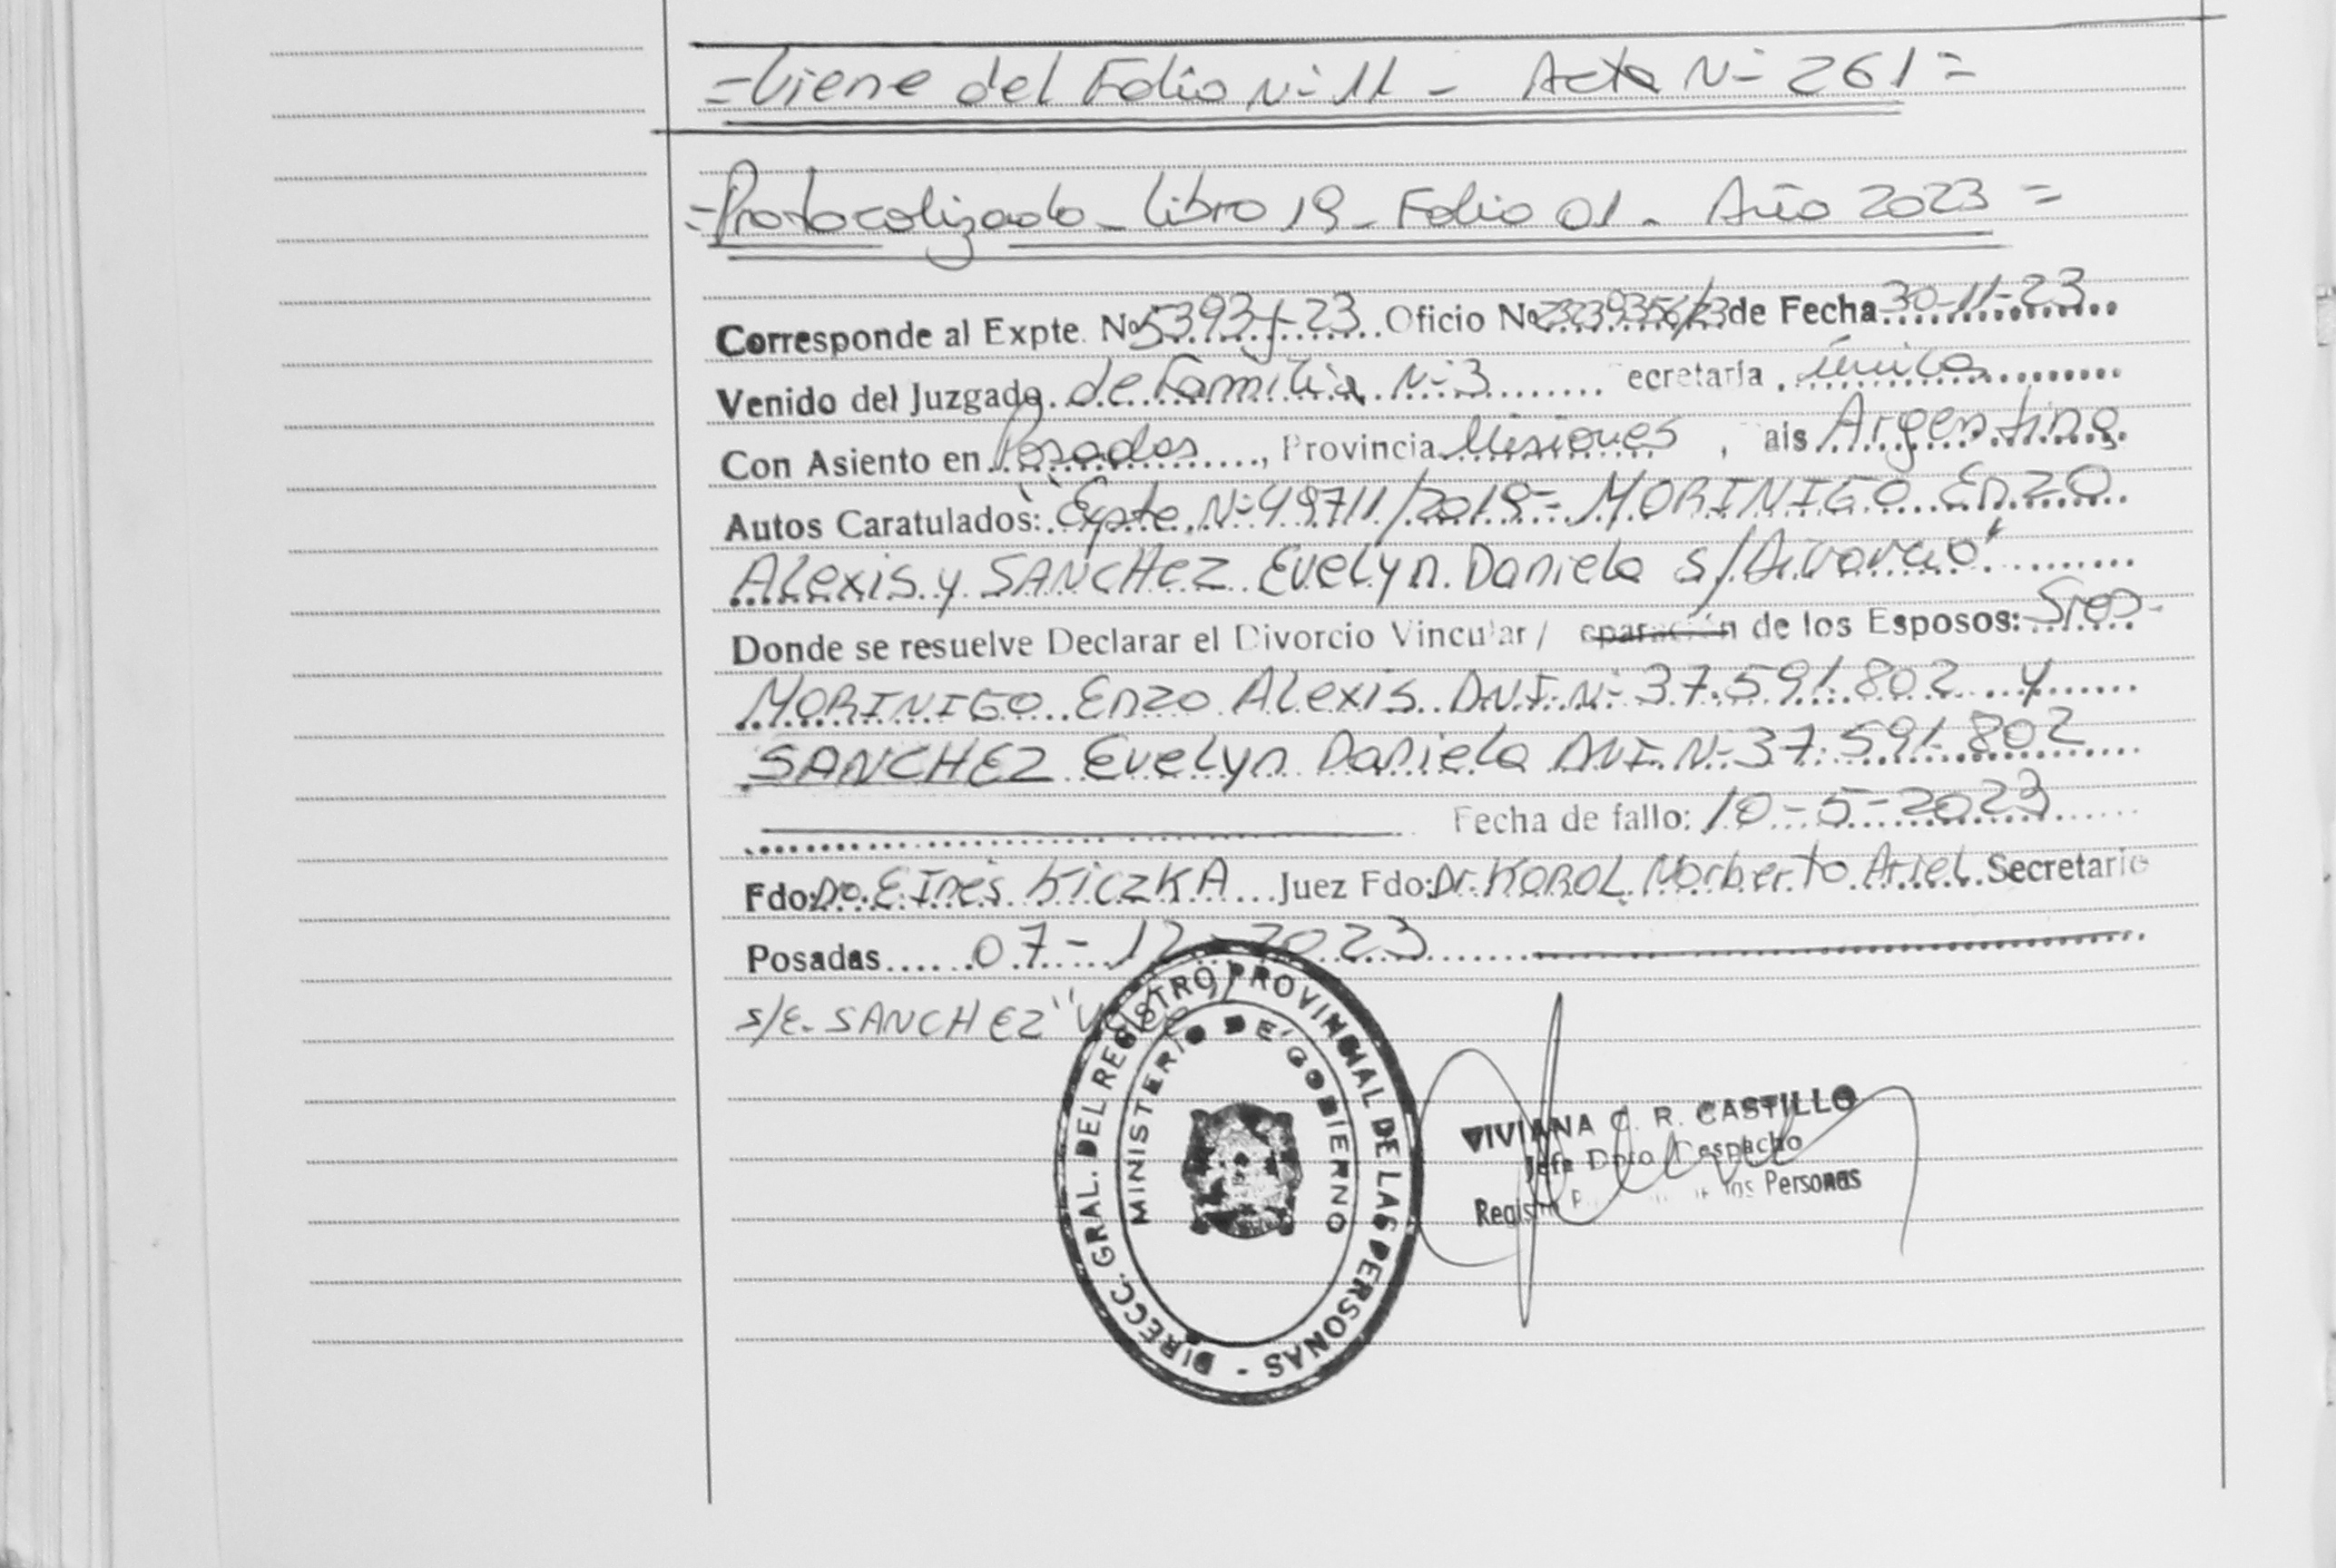 =Viene del Folio N-11 - Acta N- 261=
=Protocolizado - Libro 19 - Folio 01 - Año 2023=
Corresponde al Expte. Nº 5393-J-23 Oficio Nº de Fecha 30-11-23
Venido del Juzgado de Familia N-3 ecretaría única
Con Asiento en Posadas, Provincia Misiones, aís Argentina
Autos Caratulados: "Expte N-49711/2019- MORINIGO Enzo
Alexis y SANCHEZ Evelyn Daniela s/Divorcio"
Donde se resuelve Declarar el Divorcio Vincular/ eparación de los Esposos: Sres-
MORINIGO Enzo Alexis D.N.I. N- 37.591.802 y
SANCHEZ Evelyn Daniela DNI. N- 37.591.802
Fecha de fallo: 10-5-2023
Fdo: Dra. E Ines KiczKA Juez Fdo: Dr. KOROL Norberto Ariel Secretario
Posadas 07-12-2023
s/E- SANCHEZ "Vale"
DIRECC. GRAL. DEL REGISTRO PROVINCIAL DE LAS PERSONAS -
MINISTERIO DE GOBIERNO
VIVIANA C. R. CASTILLO
Jefa Dpto. Despacho
Registro los Personas